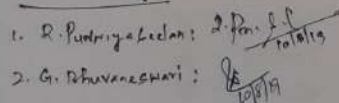 1. R. Pudhiyaseelan: 10/8/19
2. G. Bhuvaneswari: 10/8/19